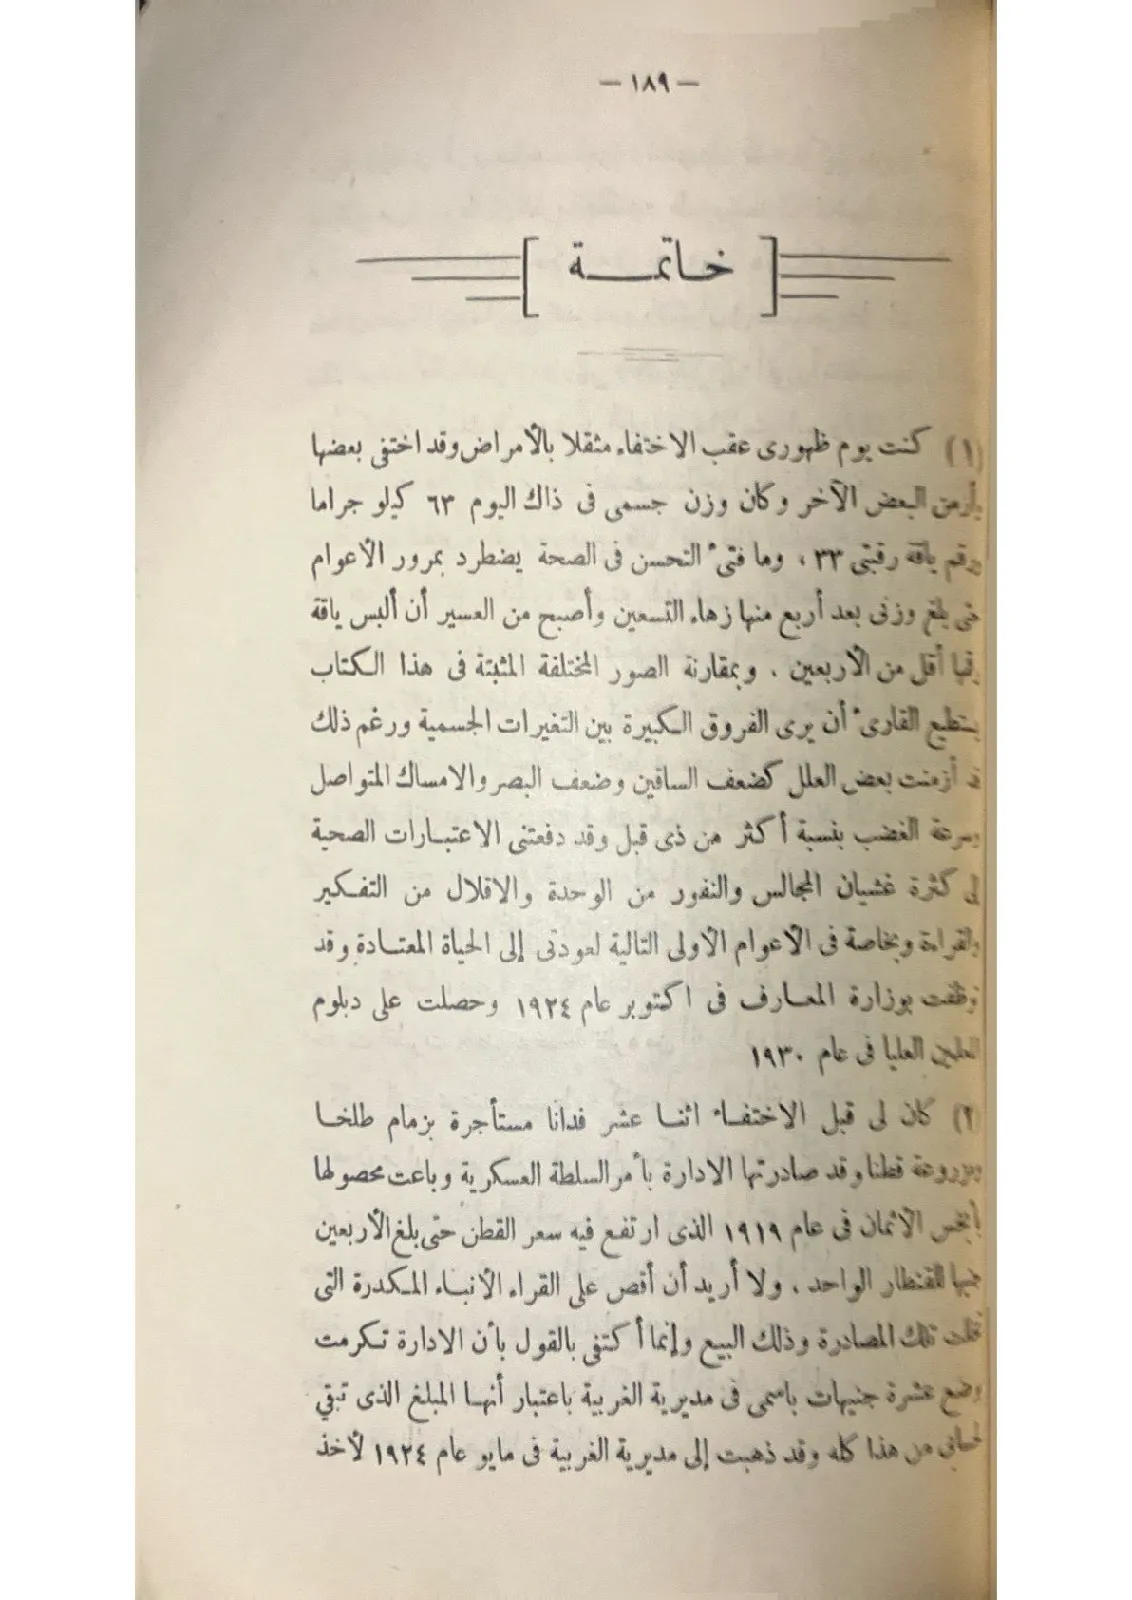 — ١٨٩ —
[ خاتمـــة ]
(١) كنت يوم ظهورى عقب الاختفاء مثقلا بالأمراض وقد اختفى بعضها
وأزمن البعض الآخر وكان وزن جسمى فى ذاك اليوم ٦٣ كيلو جراما
ورقم ياقة رقبتى ٣٣ ، وما فتىء التحسن فى الصحة يضطرد بمرور الأعوام
حتى بلغ وزنى بعد أربع منها زهاء التسعين وأصبح من العسير أن ألبس ياقة
رقمها أقل من الأربعين . وبمقارنة الصور المختلفة المثبتة فى هذا الكتاب
يستطيع القارىء أن يرى الفروق الكبيرة بين التغيرات الجسمية ورغم ذلك
قد أزمنت بعض العلل كضعف الساقين وضعف البصر والامساك المتواصل
وسرعة الغضب بنسبة أكثر من ذى قبل وقد دفعتنى الاعتبارات الصحية
إلى كثرة غشيان المجالس والنفور من الوحدة والاقلال من التفكير
والقراءة وبخاصة فى الأعوام الأولى التالية لعودتى إلى الحياة المعتادة وقد
توظفت بوزارة المعارف فى اكتوبر عام ١٩٢٤ وحصلت على دبلوم
المعلمين العليا فى عام ١٩٣٠
(٢) كان لى قبل الاختفاء اثنا عشر فدانا مستأجرة بزمام طلخا
ومزروعة قطنا وقد صادرتها الادارة بأمر السلطة العسكرية وباعت محصولها
بأبخس الأثمان فى عام ١٩١٩ الذى ارتفع فيه سعر القطن حتى بلغ الأربعين
جنيها للقنطار الواحد . ولا أريد أن أقص على القراء الأنباء المكدرة التى
تخللت تلك المصادرة وذلك البيع وإنما أكتفى بالقول بأن الادارة تكرمت
بوضع عشرة جنيهات باسمى فى مديرية الغربية باعتبار أنها المبلغ الذى تبقي
لحسابى من هذا كله وقد ذهبت إلى مديرية الغربية فى مايو عام ١٩٢٤ لأخذ